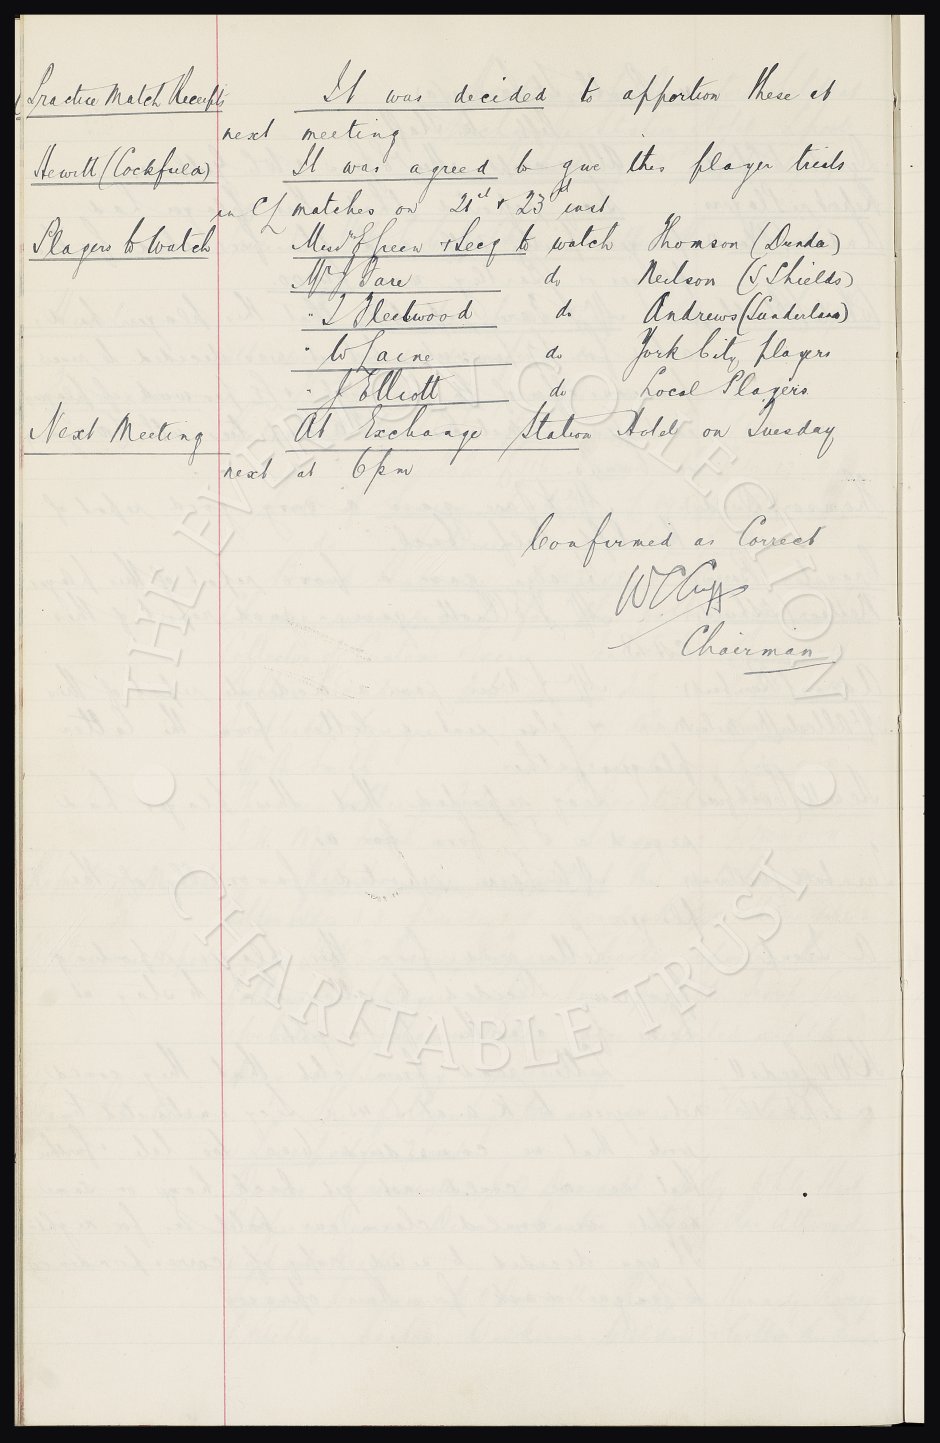 Practice Match Receipts It was decided to apportion these at
next meeting
Hewitt (Cockfield) It was agreed to give this player trials
in CL matches on 21st & 23rd inst
Players to Watch Messrs Green & Secy to watch Thomson (Dundee)
Mr J Sare do Neilson (S. Shields)
" Fleetwood do Andrews (Sunderland)
" W do York City players
" J Elliott do Local Players
Next Meeting At Exchange Station Hotel on Tuesday
next at 6pm
Confirmed as Correct
WC Cuff
Chairman
THE EVERTON COLLECTION
CHARITABLE TRUST